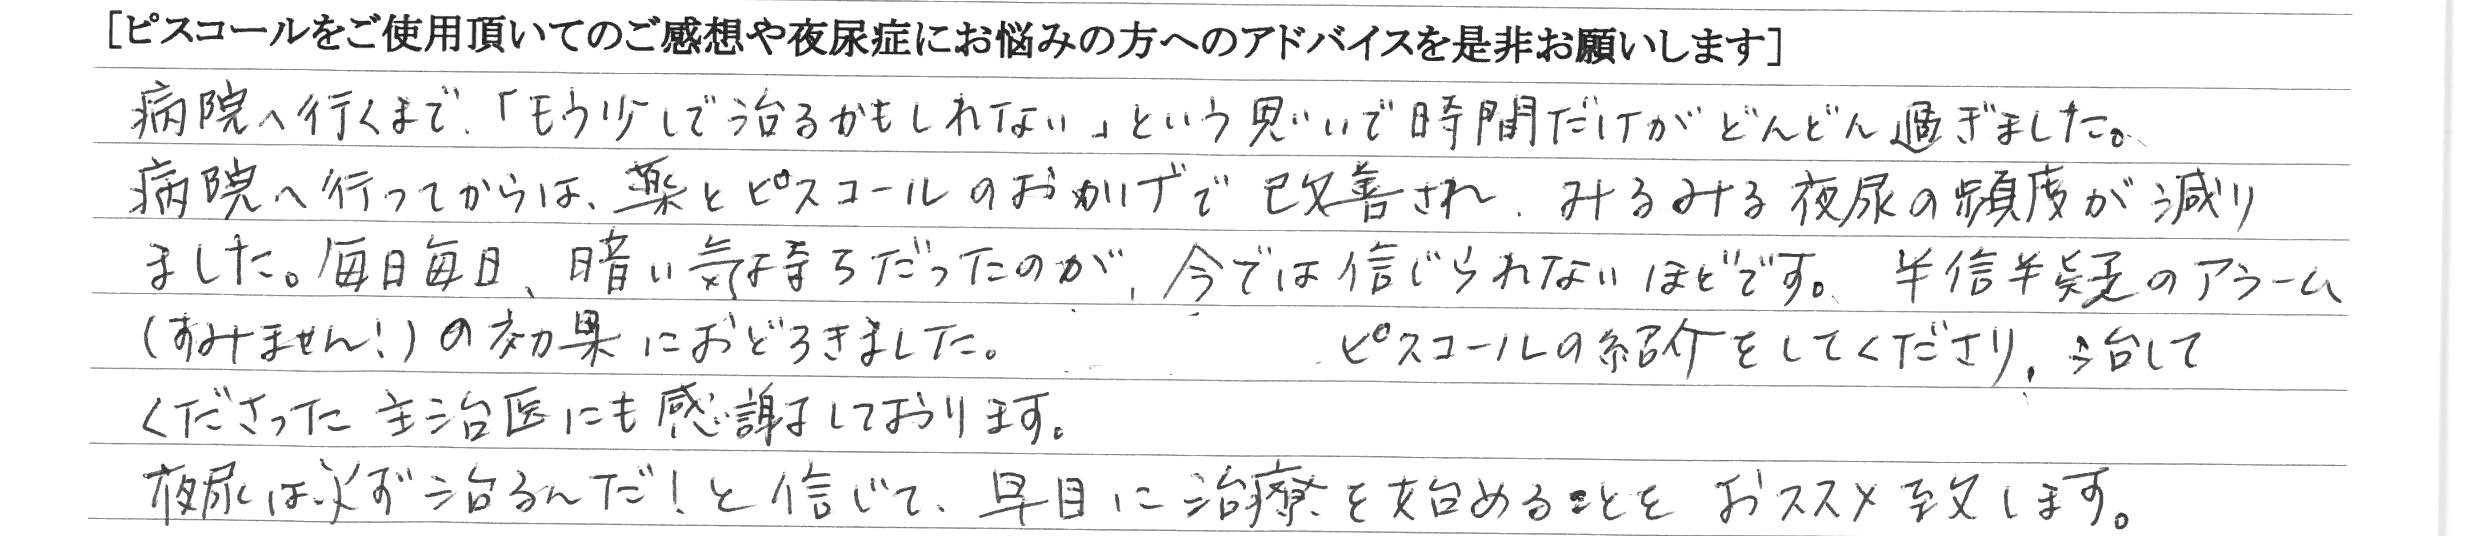 [ピスコールをご使用頂いてのご感想や夜尿症にお悩みの方へのアドバイスを是非お願いします]
病院へ行くまで、「もう少しで治るかもしれない」という思いで時間だけがどんどん過ぎました。
病院へ行ってからは、薬とピスコールのおかげで改善され、みるみる夜尿の頻度が減り
ました。毎日毎日、暗い気持ちだったのが、今では信じられないほどです。半信半疑のアラーム
(すみません!)の効果におどろきました。 ピスコールの紹介をしてくださり、治して
くださった主治医にも感謝しております。
夜尿は必ず治るんだ!と信じて、早目に治療を始めることをおススメ致します。